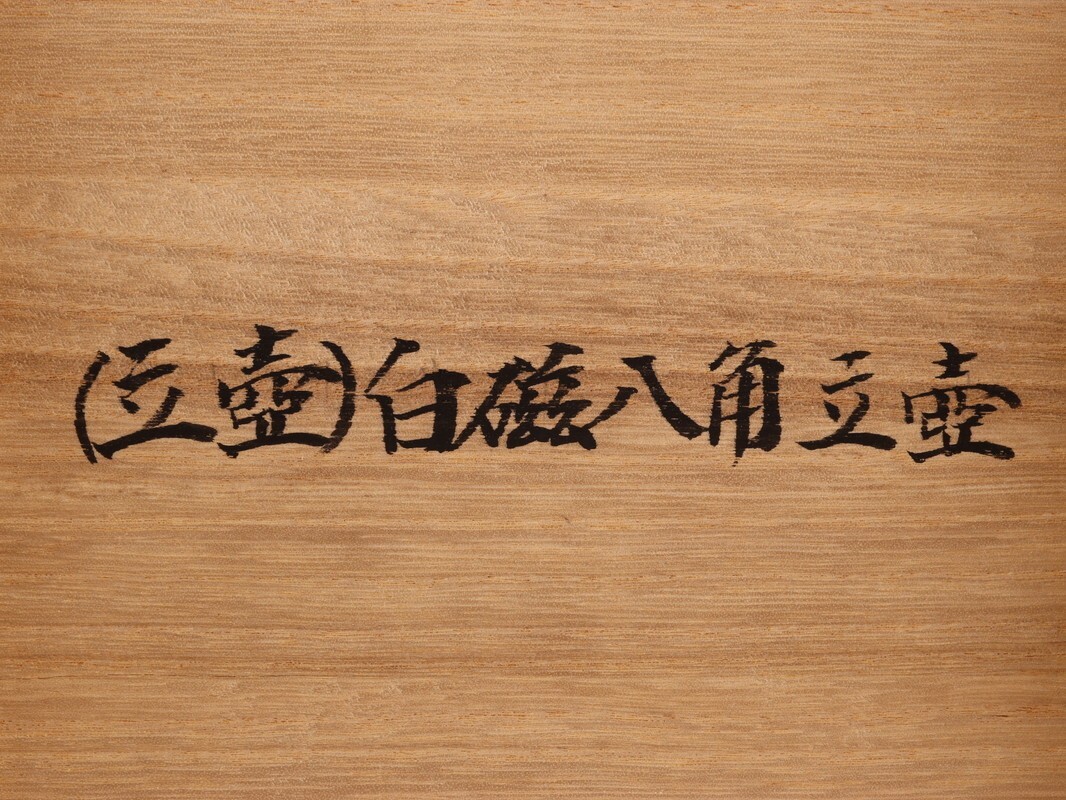 (立壺)白磁八角立壺